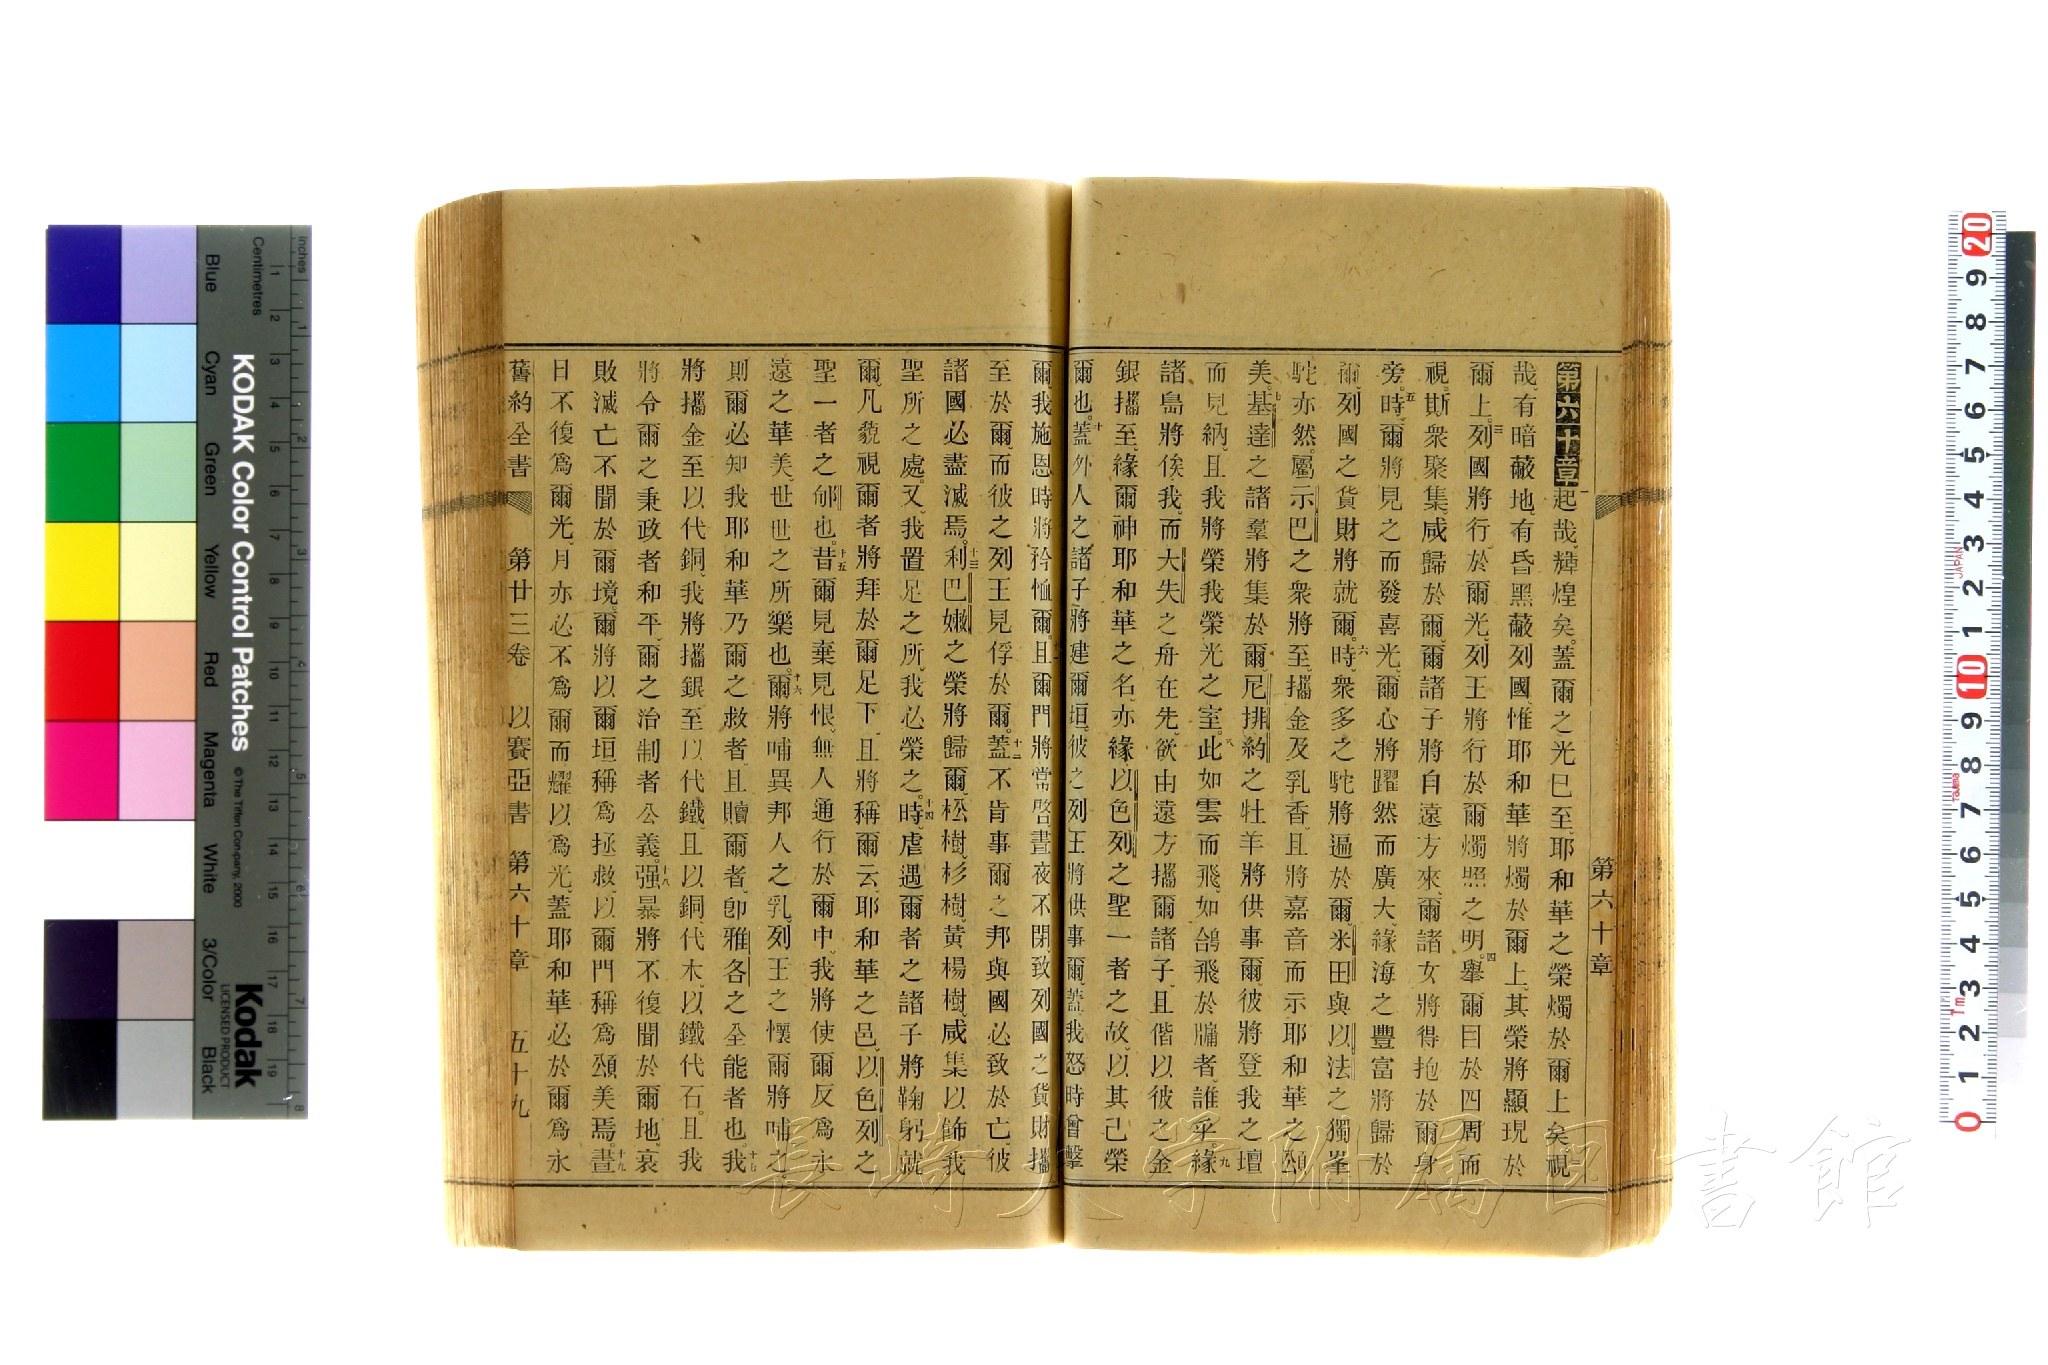 第六十章
第六十章起哉、輝煌矣。蓋爾之光已至、耶和華之榮燭於爾上矣。視
哉、有暗蔽地、有昏黑蔽列國、惟耶和華將燭於爾上、其榮將顯現於
爾上。三列國將行於爾光、列王將行於爾燭照之明。四舉爾目於四周而
視、斯衆聚集、咸歸於爾、爾諸子將自遠方來、爾諸女將得抱於爾身
旁。五時、爾將見之而發喜光、爾心將躍然而廣大、緣海之豐富將歸於
爾、列國之貨財將就爾。六時、衆多之駝將遍於爾、米田與以法之獨峯
駝亦然。屬示巴之衆將至、攜金及乳香、且將嘉音而示耶和華之頌
美。七基達之諸羣將集於爾、尼排約之牡羊將供事爾、彼將登我之壇
而見納、且我將榮我榮光之室。八此如雲而飛、如鴿飛於牖者、誰乎。九緣
諸島將俟我、而大失之舟在先、欲由遠方攜爾諸子、且偕以彼之金
銀攜至、緣爾神耶和華之名、亦緣以色列之聖一者之故、以其已榮
爾也。十蓋外人之諸子將建爾垣、彼之列王將供事爾、蓋我怒時曾擊
爾、我施恩時將矜恤爾。且爾門將常啓、晝夜不閉、致列國之貨財攜
至於爾、而彼之列王見俘於爾。十二蓋不肯事爾之邦與國必致於亡、彼
諸國必盡滅焉。十三利巴嫩之榮將歸爾、松樹、杉樹、黃楊樹、咸集以飾我
聖所之處。又我置足之所、我必榮之。十四時、虐遇爾者之諸子將鞠躬就
爾、凡藐視爾者將拜於爾足下、且將稱爾云耶和華之邑、以色列之
聖一者之郇也。十五昔爾見棄見恨、無人通行於爾中、我將使爾反爲永
遠之華美、世世之所樂也。十六爾將哺異邦人之乳、列王之懷爾將哺之。
則爾必知我耶和華乃爾之救者、且贖爾者、卽雅各之全能者也。十七我
將攜金至以代銅、我將攜銀至以代鐵、且以銅代木、以鐵代石。且我
將令爾之秉政者和平、爾之治制者公義。十八强暴將不復聞於爾地、哀
敗滅亡不聞於爾境、爾將以爾垣稱爲拯救、以爾門稱爲頌美焉。十九晝
日不復爲爾光、月亦必不爲爾而耀以爲光、蓋耶和華必於爾爲永
舊約全書 第廿三卷 以賽亞書 第六十章 五十九
長崎大学附属図書館
KODAK Color Control Patches
© The Tiffen Company, 2000
Kodak
LICENSED PRODUCT
inches
Centimetres
Blue Cyan Green Yellow Red Magenta White 3/Color Black
1 2 3 4 5 6 7 8 9 10 11 12 13 14 15 16 17 18 19
1 2 3 4 5 6 7 8
20 9 8 7 6 5 4 3 2 1 10 9 8 7 6 5 4 3 2 1 0
JAPAN